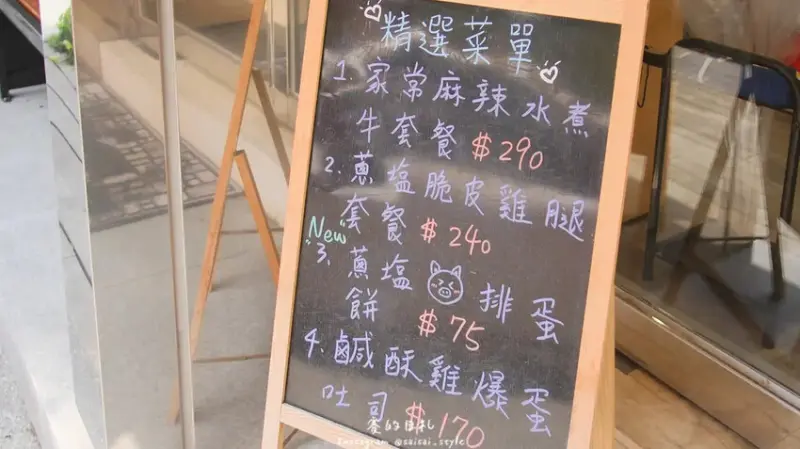 精選菜單
1. 家常麻辣水煮
牛套餐 $290
2. 蔥塩脆皮雞腿
套餐 $240
"New"
3. 蔥塩 排蛋
餅 $75
4. 鹹酥雞爆蛋
吐司 $170
賽的日札
Instagram @saisai_style